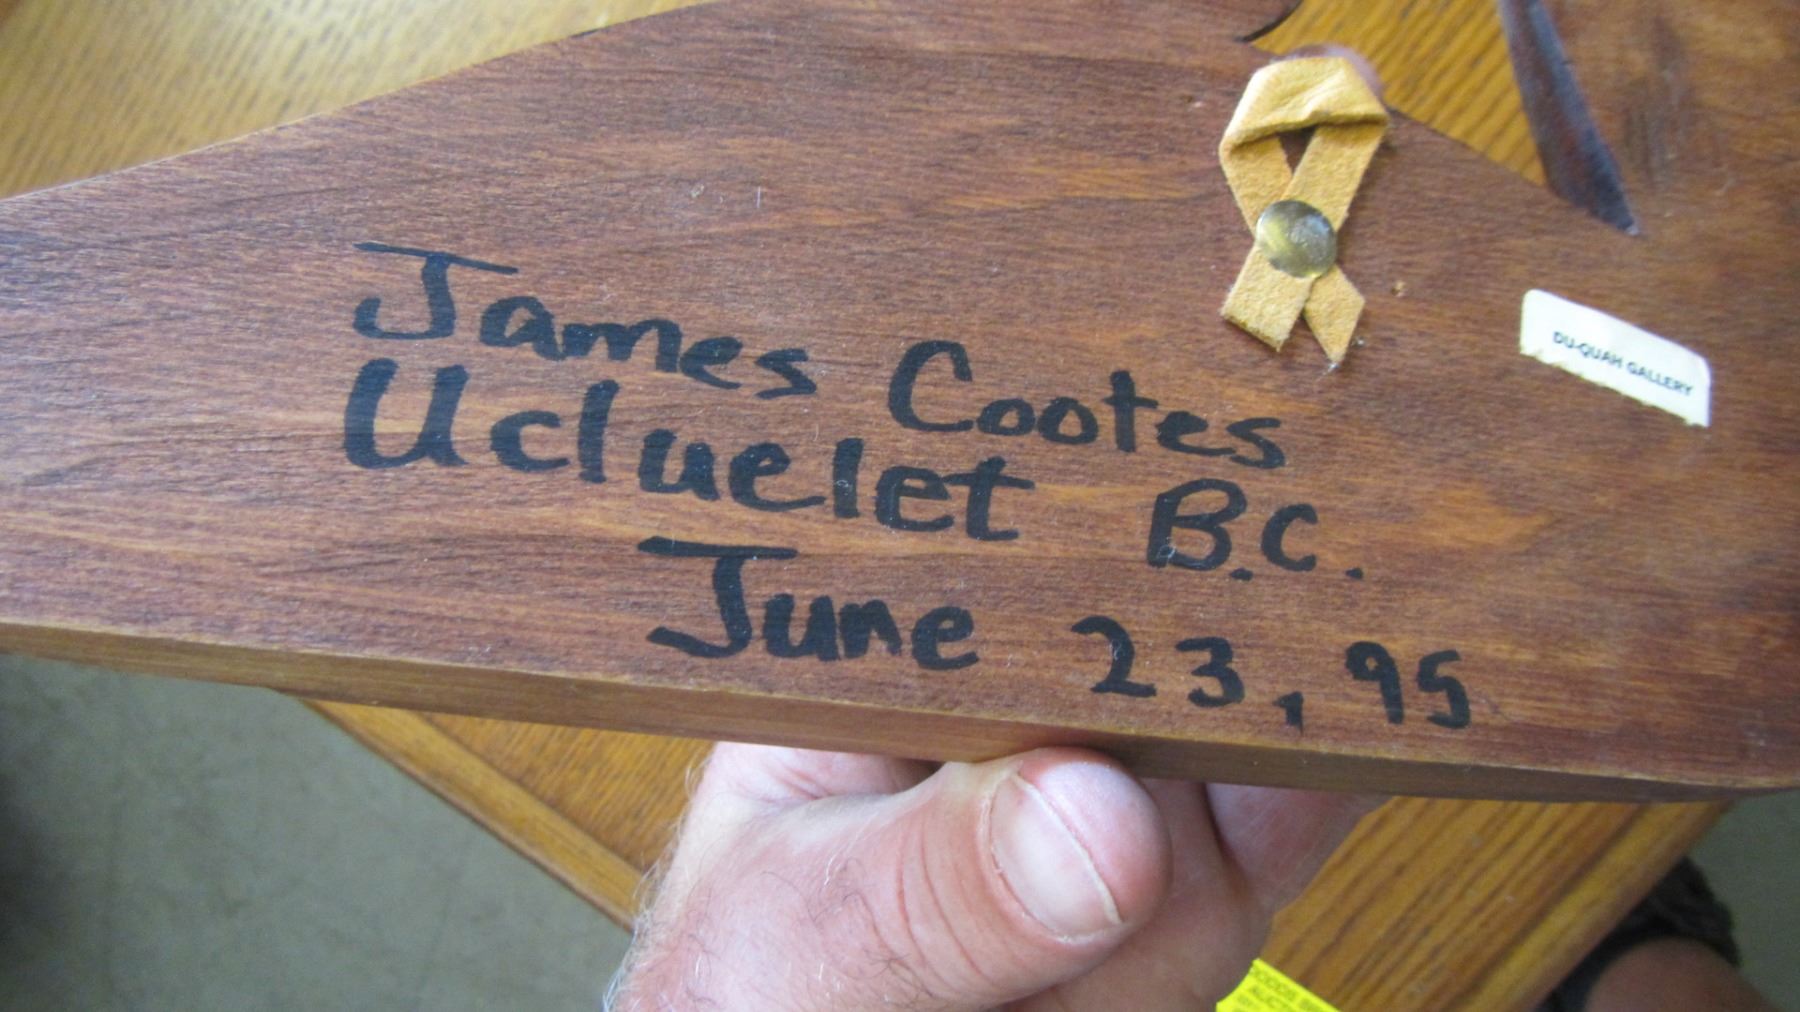 James Cootes
Ucluelet B.C.
June 23, 95
DU-QUAH GALLERY